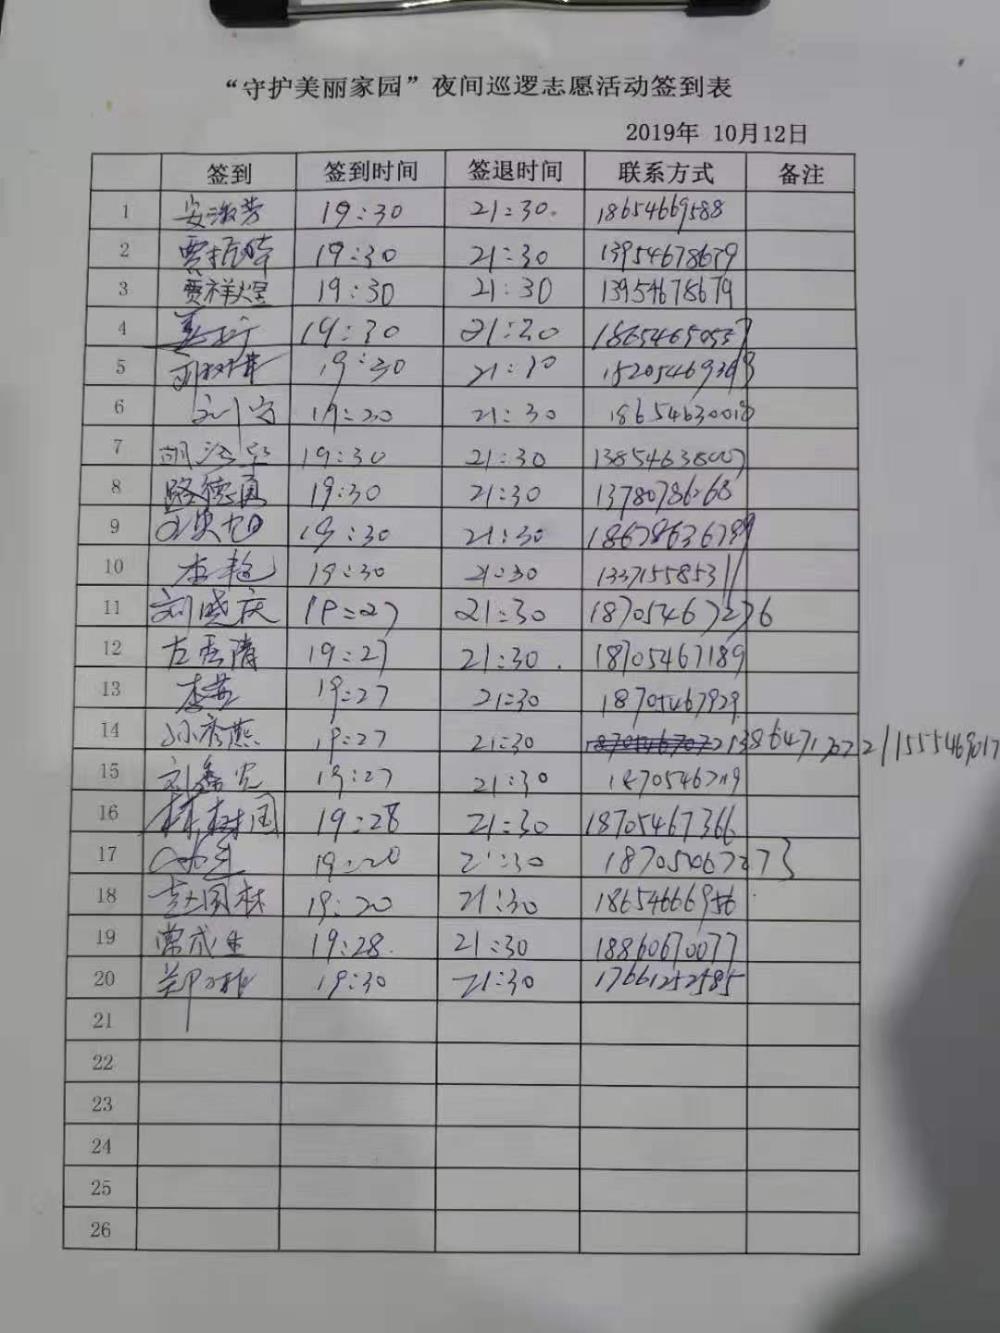 “守护美丽家园”夜间巡逻志愿活动签到表
2019年 10月12日
签到 签到时间 签退时间 联系方式 备注
1 安淑芳 19:30 21:30. 18654669588
2 19:30 21:30 13954678679
3 贾祥煜 19:30 21:30 13954678679
4 19:30 21:30
5 19:30 21:30
6 21:30 18654630018
7 19:30 21:30
8 路德勇 19:30 21:30 13780786268
9 19:30 21:30
10 李艳 19:30 21:30 13371558531
11 刘晓庆 19:27 21:30 18705467276
12 19:27 21:30. 18705467189
13 李燕 19:27 21:30 18705467929
14 孙秀燕 19:27 21:30
15 19:27 21:30
16 林树国 19:28 21:30 18705467366
17 19:20 21:30
18 赵国林 19:20 21:30 18654666956
19 常成生 19:28. 21:30 18860670077
20 19:30 21:30 17661252585
21
22
23
24
25
26